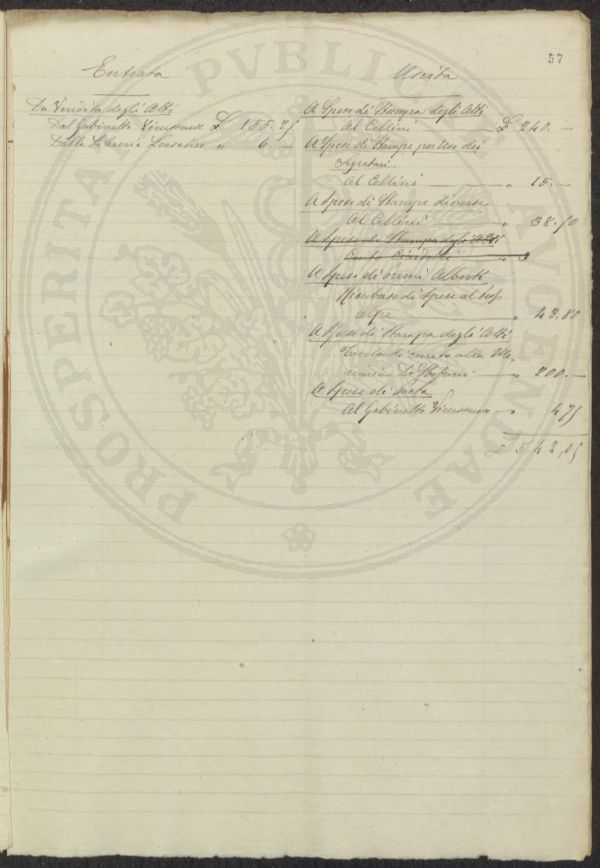 57
Entrata
Da Vendita degli Atti
Dal Gabinetto Vieusseux £ 155.25
Dalla Libreria Loescher " 6.—
Uscita
A Spese di Stampa degli Atti
Al Cellini — £ 240.—
A Spese di Stampe per Uso dei
Segretari
Al Cellini — " 15.—
A Spese di Stampe diverse
Al Cellini — " 38.50
A Spese di Stampa degli Atti
Conto
A Spese di Premi Alberti
Rimborso di Spese al
" 43.80
A Spese di Stampa degli Atti
Tavola di corredo alla Me-
moria De Stefani — " 200.—
A Spese di Posta
Al Gabinetto Vieusseux — " 4.75
£ 542,05
PROSPERITATI PVBLICAE AVGENDAE